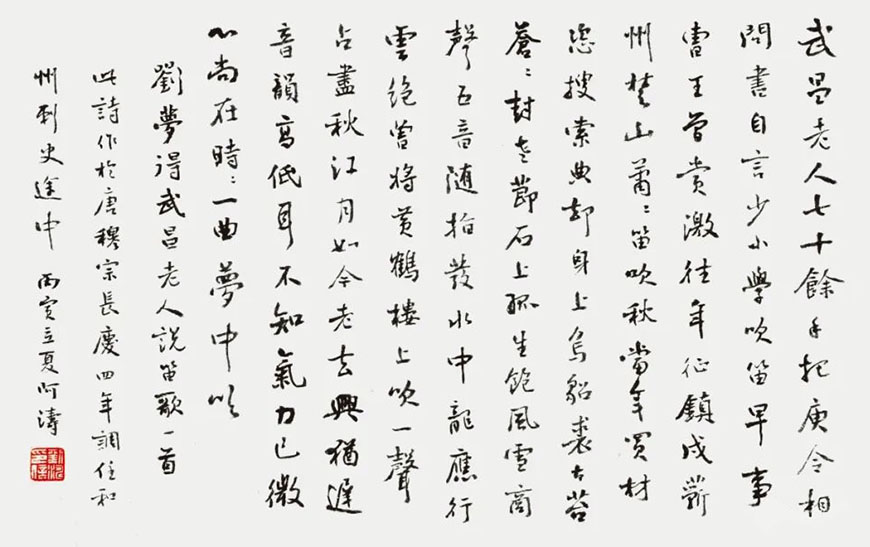 武昌老人七十餘手把庾令相
問書自言少小學吹笛早事
曹王曾賞激往年征鎮戍蘄
州楚山蕭〻笛吹秋當年買材
恣搜索典却身上烏貂裘古苔
蒼〻封老節石上孤生飽風雪商
聲五音隨指發水中龍應行
雲絕曾將黄鶴樓上吹一聲
占盡秋江月如今老去興猶遲
音韻高低耳不知氣力已微
心尚在時〻一曲夢中吹
劉夢得武昌老人説笛歌一首
此詩作於唐穆宗長慶四年調任和
州刺史途中 丙寅立夏阿濤